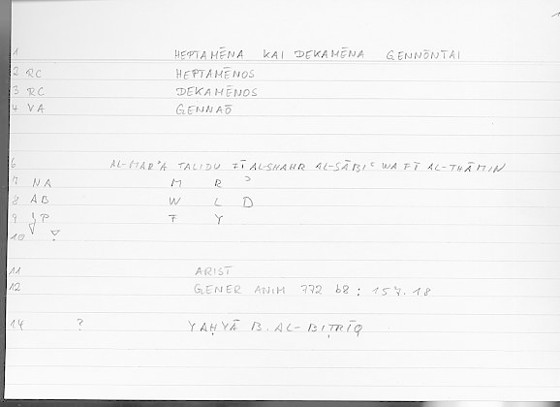 1 HEPTAMĒNA KAI DEKAMĒNA GENNŌNTAI
2 RC HEPTAMĒNOS
3 RC DEKAMĒNOS
4 VA GENNAŌ
6 AL-MARʾA TALIDU FĪ AL-SHAHR AL-SĀBIʿ WA FĪ AL-THĀMIN
7 NA M R ʾ
8 AB W L D
9 P F Y
10 ?
11 ARIST
12 GENER ANIM 772 b8 : 157.18
14 ? YAḤYĀ B. AL-BIṬRĪQ